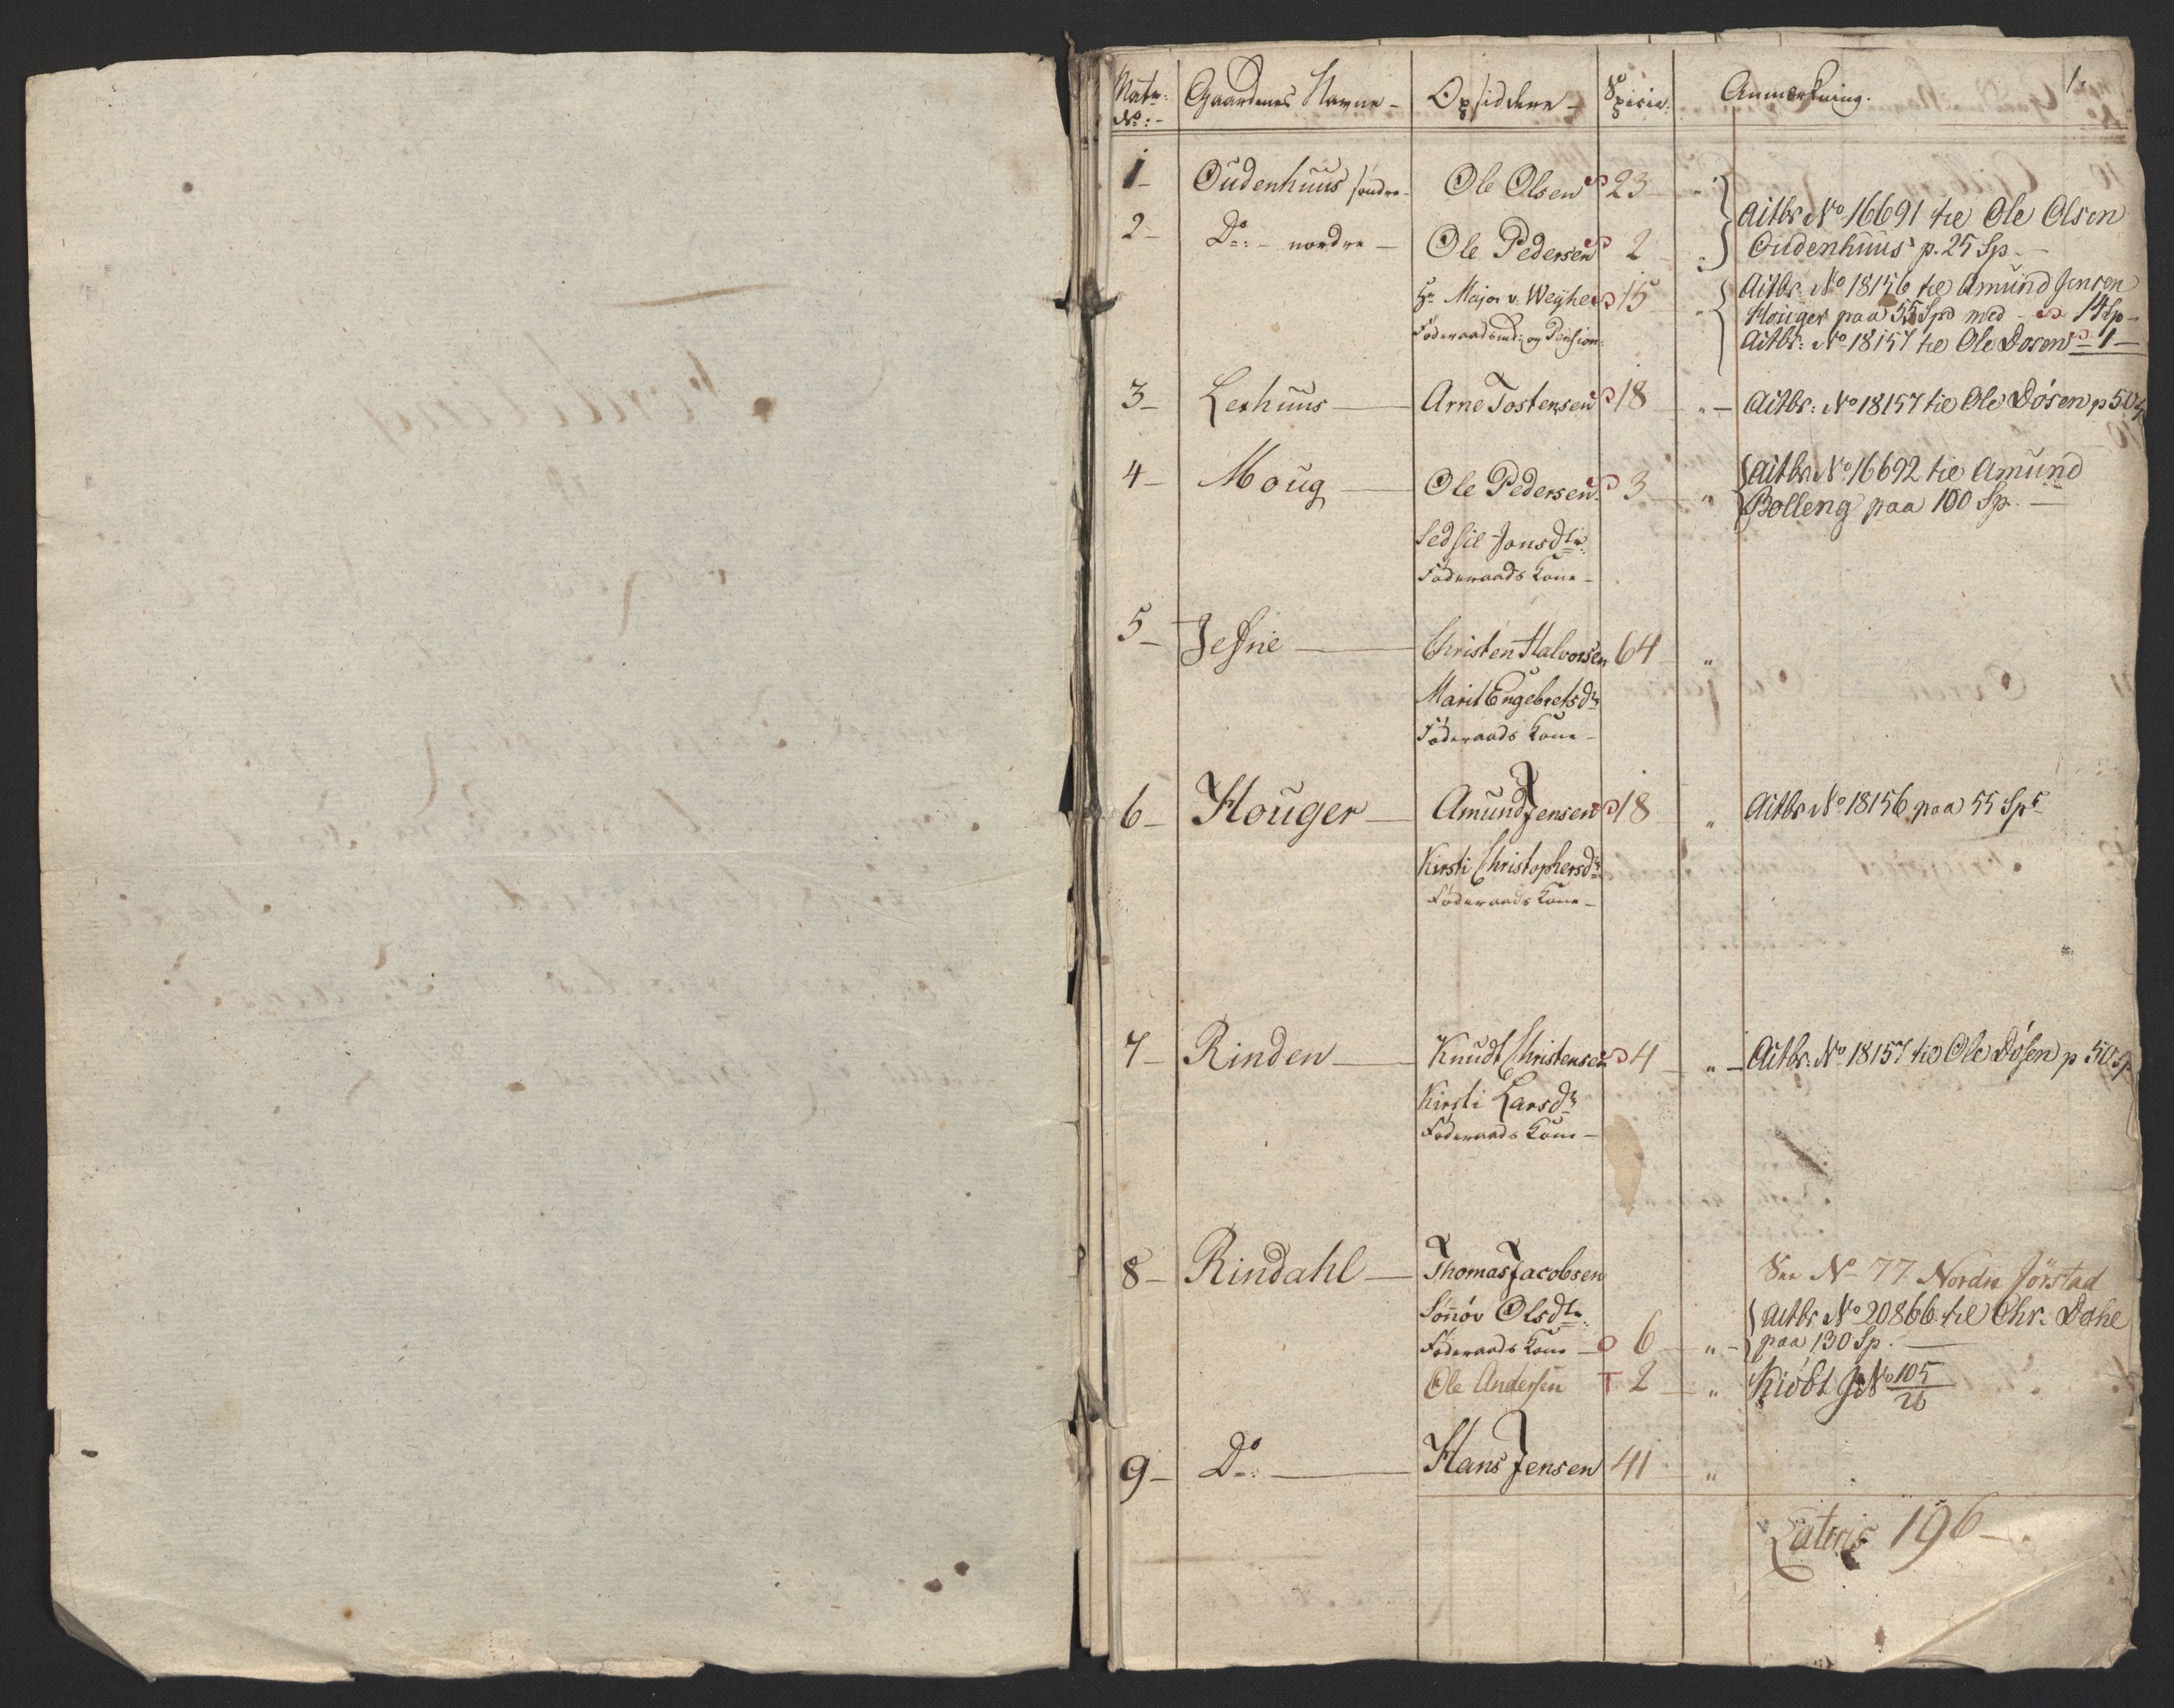 Matr: Gaardenes Navne – Opsiddere – Specier. Anmerkning. 1.
No: –
1 – Oudenhuus söndre – Ole Olsen 23 „
Actbr No 16691 til Ole Olsen
2 – Do: – nordre – Ole Pedersen 2 „ Oudenhuus p. 25 Sp. –
Hr Major v. Weyhe 15 „ Actbr: No 18156 til Amund Jensen
Houger paa 55 Spd med – 14 Sp –
Föderaadsmd: og Pension: Actbr: No 18157 til Ole Dosen – 1 –
3 – Lexhuus – Arne Tostensen 18 „ – Actbr: No 18157 til Ole Dösen p 50
4 – Moug – Ole Pedersen 3 „ Actbr No 16692 til Amund
Bolleng paa 100 Sp. –
Sedsil Jonsdtr:
Föderaads Kone –
5 – Jesne – Christen Halvorsen 64 „
Marit Engebretsdr
Föderaads Kone –
6 – Houger – Amund Jensen 18 „ Actbr No 18156 paa 55 Sp
Kirsti Christophersdr
Föderaads Kone –
7 – Rinden – Knudt Christensen 4 „ – Actbr: No 18157 til Ole Dösen p 50 Sp
Kirsti Larsdr
Föderaads Kone –
8 – Rindahl – Thomas Jacobsen See No 77 Nordre Jörstad
Sönnöv Olsdtr: Actbr No 20866 til Chr. Dahl
Föderaads Kone – o 6 „ – paa 130 Sp. –
Ole Andersen T 2 „ Kiöbt JNo 105/26
9 – Do: – Hans Jensen 41 „
Lateris 196 –